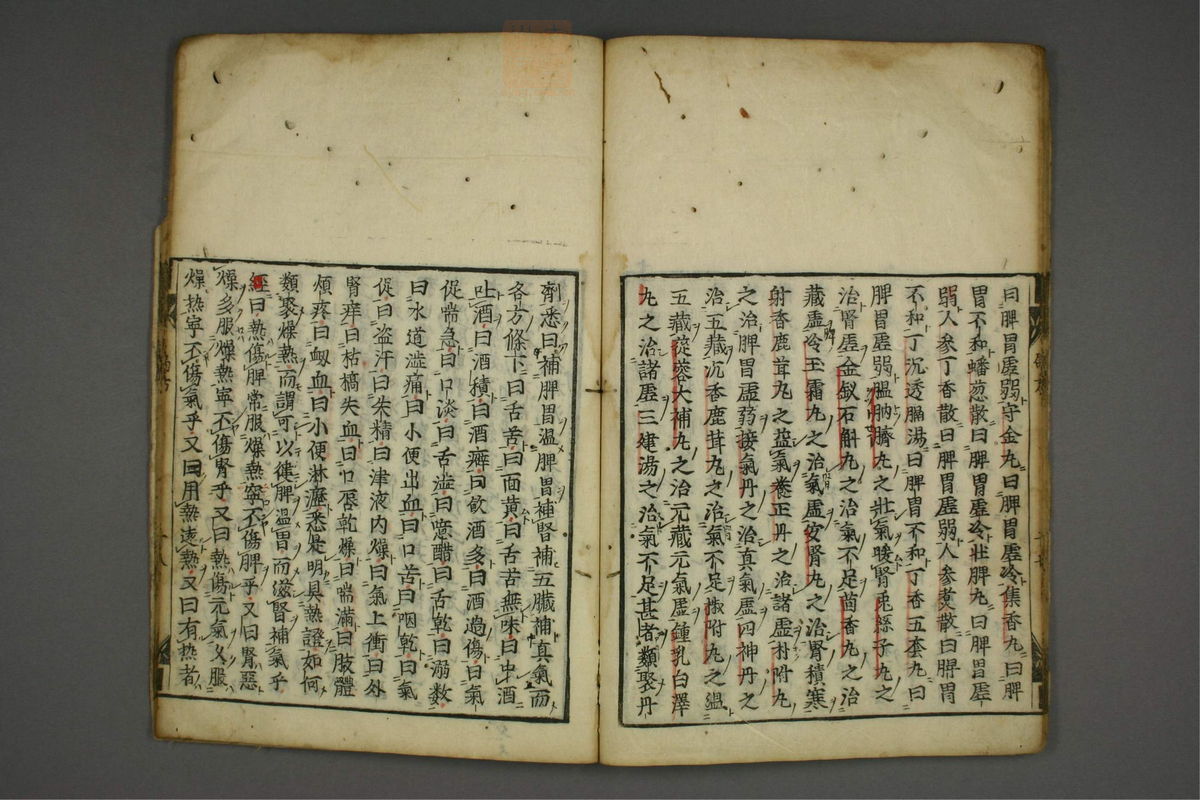 曰脾胃虛弱守金九曰脾胃虛冷集香九曰脾
胃不和蟠葱散曰脾胃虛冷壯脾九曰脾胃虛
弱人參丁香散曰脾胃虛弱人參煑散曰脾胃
不和丁沉透膈湯曰脾胃不和丁香五套九曰
脾胃虛弱膃肭臍九之壯氣暖腎兎絲子九之
治腎虛金釵石斛九之治氣不足茴香九之治
藏虛冷玉霜九之治氣虛安腎九之治腎積寒
射香鹿茸九之益氣養正丹之治諸虛材附九
之治脾胃虛弱接氣丹之治真氣虛四神丹之
治五藏沉香鹿茸九之治氣不足椒附九之温
五藏蓯蓉大補九之治元藏元氣虛鍾乳白澤
九之治諸虛三建湯之治氣不足甚者類聚丹
劑悉曰補脾胃温脾胃補腎補五臟補真氣而
各方條下曰舌苦曰面黄曰舌苦無味曰中酒
吐酒曰酒積曰酒癖曰飲酒多曰酒過傷曰氣
促喘急曰口淡曰舌澁曰噫醋曰舌乾曰溺数
曰水道澁痛曰小便出血曰口苦曰咽乾曰氣
促曰盗汗曰失精曰津液内燥曰氣上衝曰外
腎痒曰枯槁失血曰口唇乾燥曰喘滿曰肢體
煩疼曰衂血曰小便淋瀝悉是明具熱證如何
類聚燥熱而謂可以徤脾温胃而滋腎補氣乎
經曰熱傷脾常服燥熱寧不傷脾乎又曰腎惡
燥多服燥熱寧不傷腎乎又曰熱傷元氣久服
燥熱寧不傷氣乎又曰用熱遠熱又曰有热者